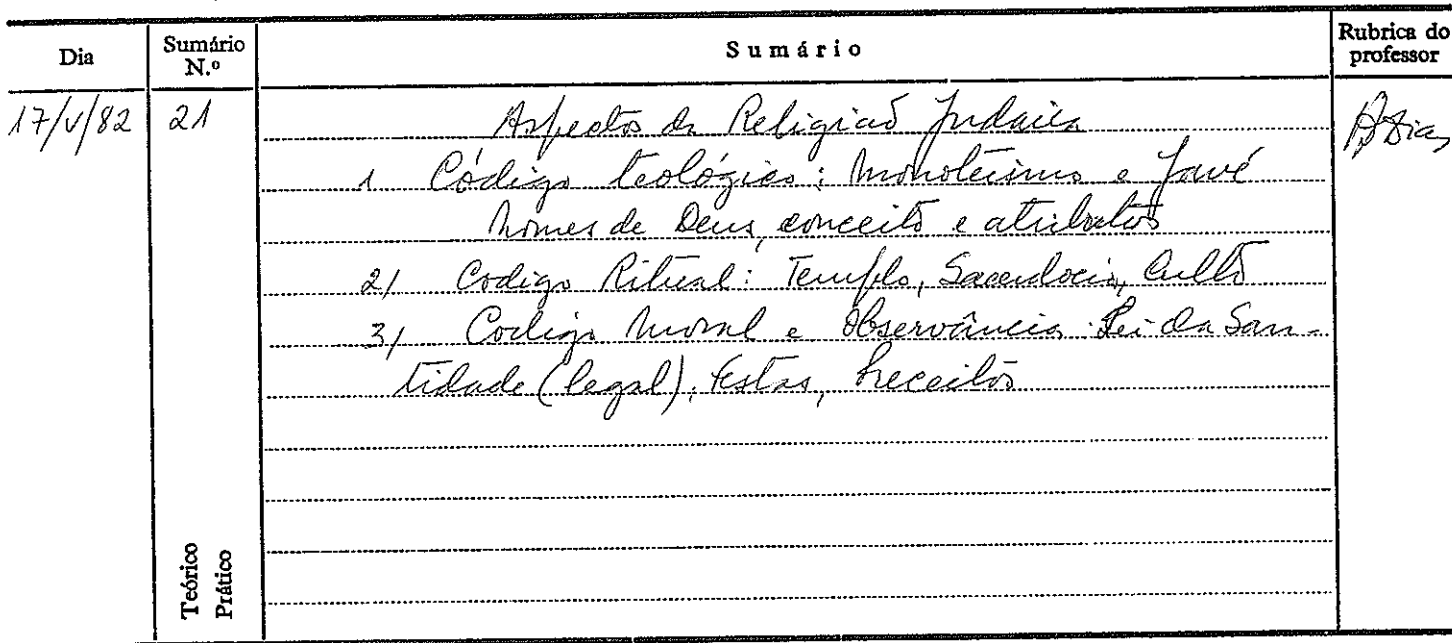 Dia Sumário N.º Sumário Rubrica do professor
17/V/82 21 Aspectos da Religião Judaica
1 Código teológico: Monoteísmo e Javé
Nomes de Deus, conceito e atributos
2/ Codigo Ritual: Templo, Sacerdocio, Culto
3/ Codigo Moral e Observância: Lei da San-
tidade (legal), festas, Preceitos
Teórico
Prático